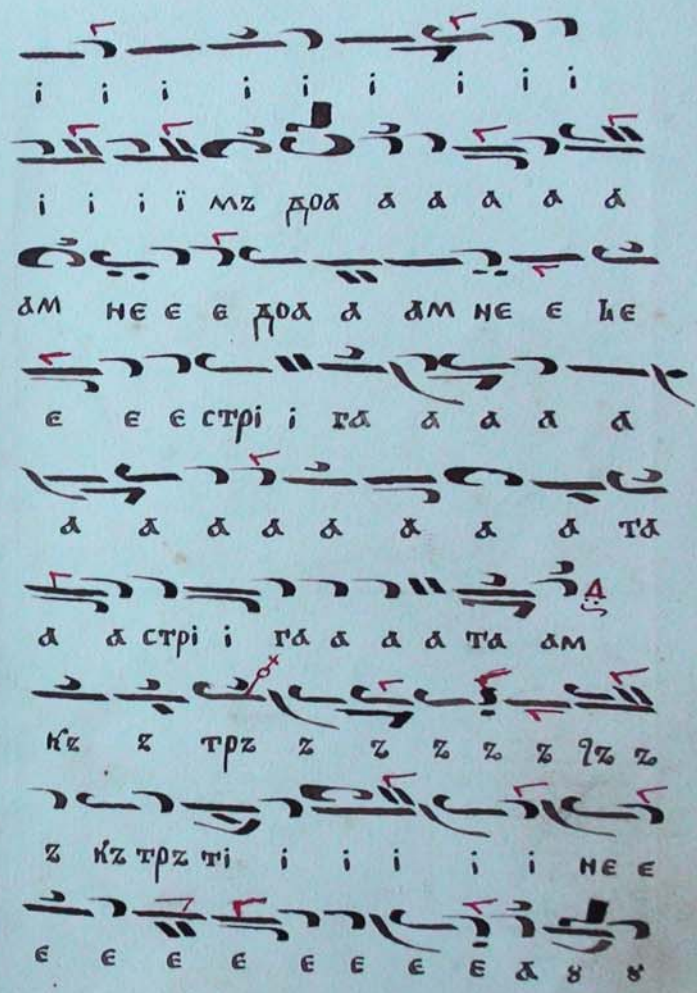 і і і і і і і і і
і і і ї мz доа а а а а а
ам не е е доа а ам не е ье
е е е стрі і га а а а а
а а а а а а а а та
а а стрі і га а а а та ам
кz z трz z z z z z z
z кz трz ті і і і і і не е
е е е е е е е е а ꙋ ꙋ